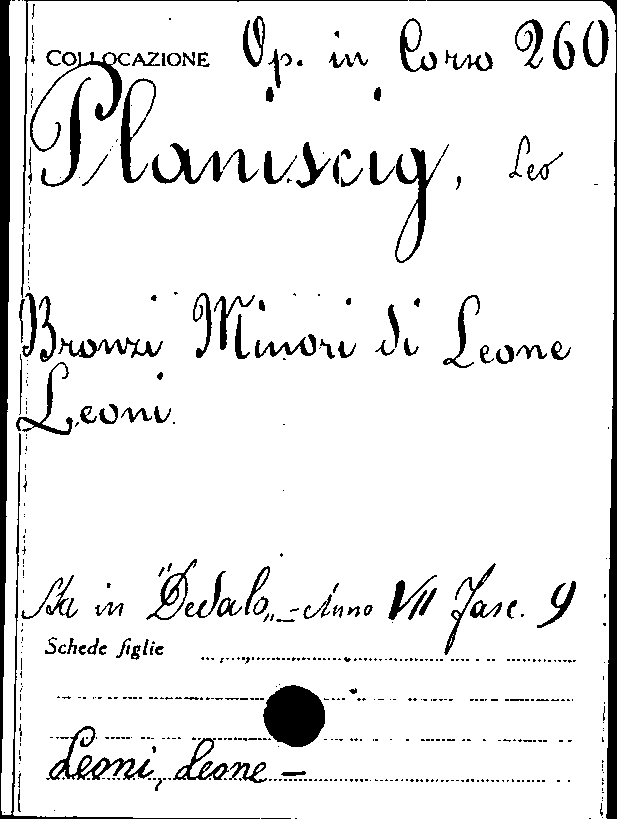 COLLOCAZIONE Op. in Corso 260
Planiscig, Leo
Bronzi Minori di Leone
Leoni
Sta in "Dedalo" - Anno VII Fasc. 9
Schede figlie
Leoni, Leone -